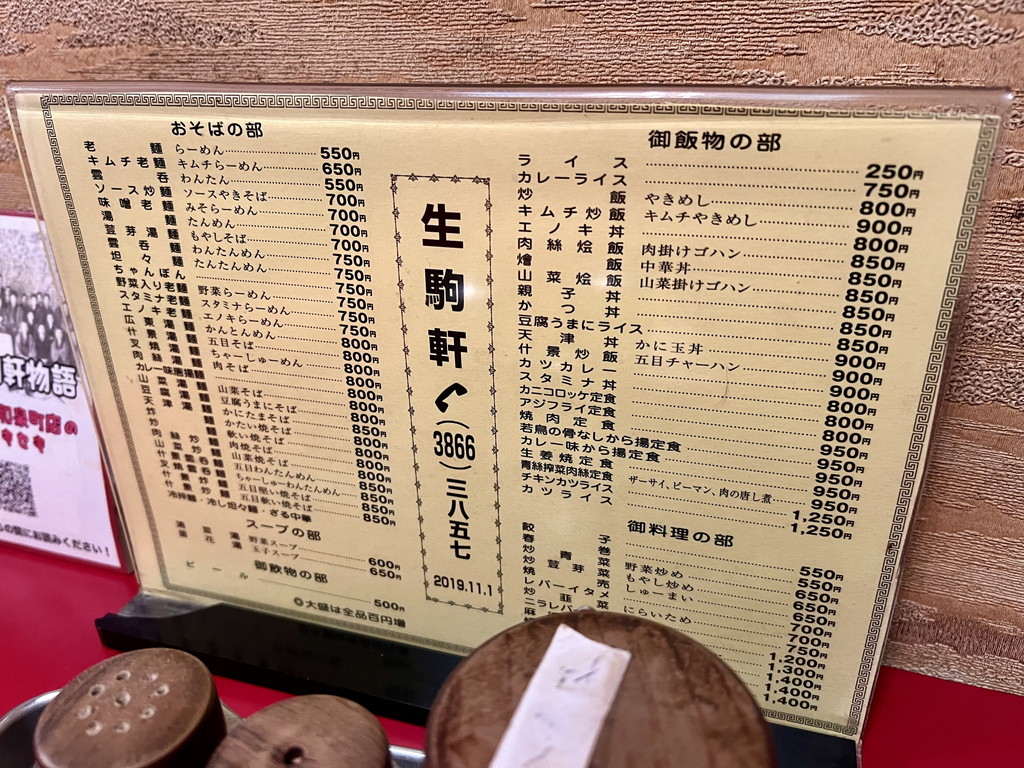 おそばの部
老麺 らーめん 550円
キムチ老麺 キムチらーめん 650円
雲呑 わんたん 550円
ソース炒麺 ソースやきそば 700円
味噌老麺 みそらーめん 700円
湯麺 たんめん 700円
荳芽湯麺 もやしそば 750円
雲呑麺 わんたんめん 750円
坦々麺 たんたんめん 750円
ちゃんぽん 750円
野菜入り老麺 野菜らーめん 750円
スタミナ老麺 スタミナらーめん 750円
エノキ老麺 エノキらーめん 750円
広東湯麺 かんとんめん 800円
什景湯麺 五目そば 800円
叉焼湯麺 ちゃーしゅーめん 800円
肉絲湯麺 肉そば 800円
カレー味唐揚麺
山菜湯麺 山菜そば
豆腐湯麺 豆腐うまにそば
天津湯麺 かにたまそば
炒麺 かたい焼そば
軟い焼そば
肉絲炒麺 肉焼そば
山菜炒麺 山菜焼そば
什景雲呑麺 五目わんたんめん
叉焼雲呑麺 ちゃーしゅーわんたんめん 850円
什景炒麺 五目堅い焼そば 850円
五目軟い焼そば 850円
冷拌麺・冷し坦々麺・ざる中華 850円
スープの部
湯菜湯 野菜スープ 600円
蛋花湯 玉子スープ 650円
御飲物の部
ビール 500円
◎大盛は全品百円増
生駒軒
(3866)三八五七
2019.11.1
御飯物の部
ライス 250円
カレーライス 750円
炒飯 やきめし 800円
キムチ炒飯 キムチやきめし 900円
エノキ丼 800円
肉絲烩飯 肉掛けゴハン 850円
燴飯 中華丼 850円
山菜烩飯 山菜掛けゴハン 850円
親子丼 850円
かつ丼 850円
豆腐うまにライス 850円
天津丼 かに玉丼 900円
什景炒飯 五目チャーハン 900円
カツカレー 900円
スタミナ丼 800円
カニコロッケ定食 800円
アジフライ定食 800円
焼肉定食 950円
若鳥の骨なしから揚定食 950円
カレー味から揚定食 950円
生姜焼定食 950円
青絲搾菜肉絲定食 ザーサイ、ピーマン、肉の唐し煮 950円
チキンカツライス 1,250円
カツライス 1,250円
御料理の部
餃子 550円
春巻 550円
炒青菜 野菜炒め 650円
炒荳芽菜 もやし炒め 650円
焼売 しゅーまい 650円
レバーイタメ 700円
炒韮菜 にらいため 700円
ニラレバ 750円
麻 1,200円
1,300円
1,400円
1,400円
軒物語
和泉町店の
キセキ
お読みください!